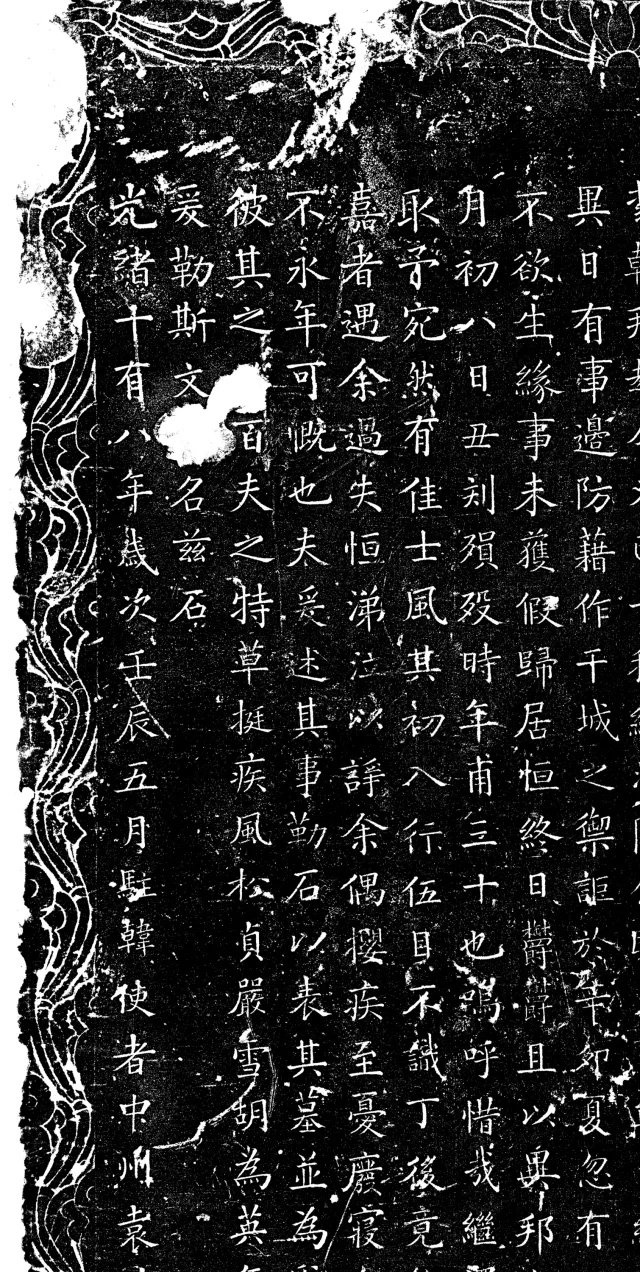 異日有事邊防藉作干城之禦詎於辛卯夏忽有
不欲生緣事未獲假歸居恒終日欝欝且以異邦
月初八日丑刻殞歿時年甫三十也嗚呼惜哉繼
取予宛然有佳士風其初入行伍目不識丁後竟
嘉者遇余過失恒涕泣以諍余偶攖疾至憂廢寢
不永年可慨也夫爰述其事勒石以表其墓並為
彼其之 百夫之特草挺疾風松貞嚴雪胡為英
爰勒斯文 名茲石
光緒十有八年歲次壬辰五月駐韓使者中州袁